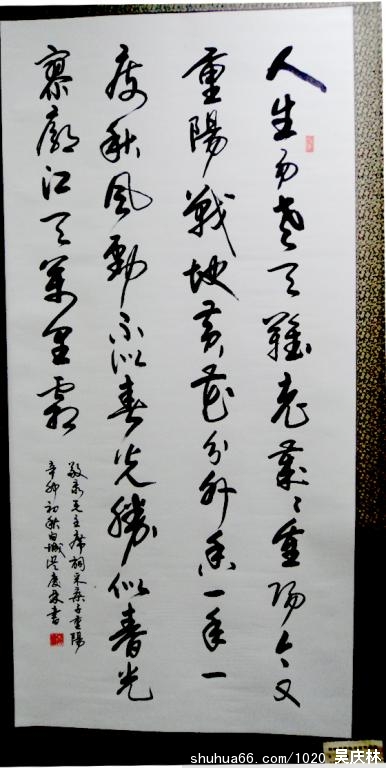 人生易老天難老歲々重阳今又
重陽戰地黄花分外香一年一
度秋風勁不似春光勝似春光
寥廓江天萬里霜
敬录毛主席词采桑子重陽
辛卯初秋白城吴庆林書
shuhua66.com/1020 吴庆林